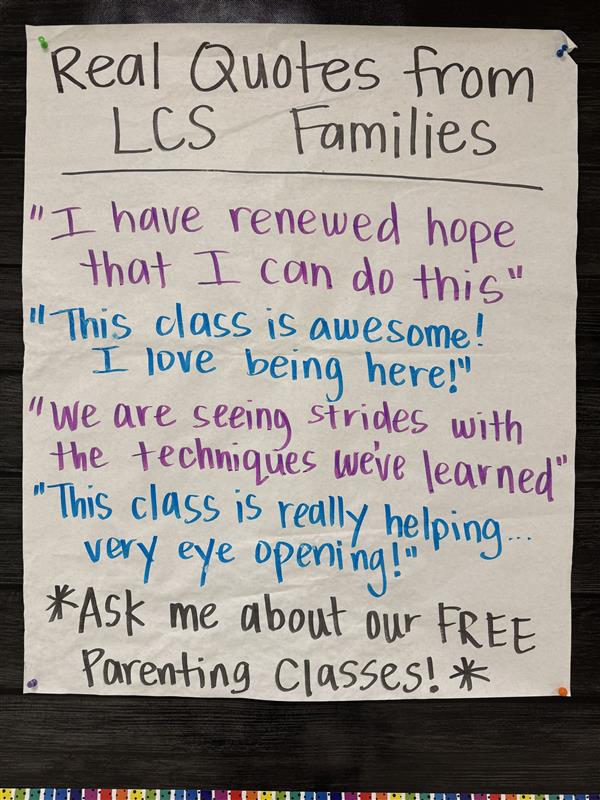 Real Quotes from
LCS Families
"I have renewed hope
that I can do this"
"This class is awesome!
I love being here!"
"We are seeing strides with
the techniques we've learned"
"This class is really helping...
very eye opening!"
*Ask me about our FREE
Parenting Classes! *